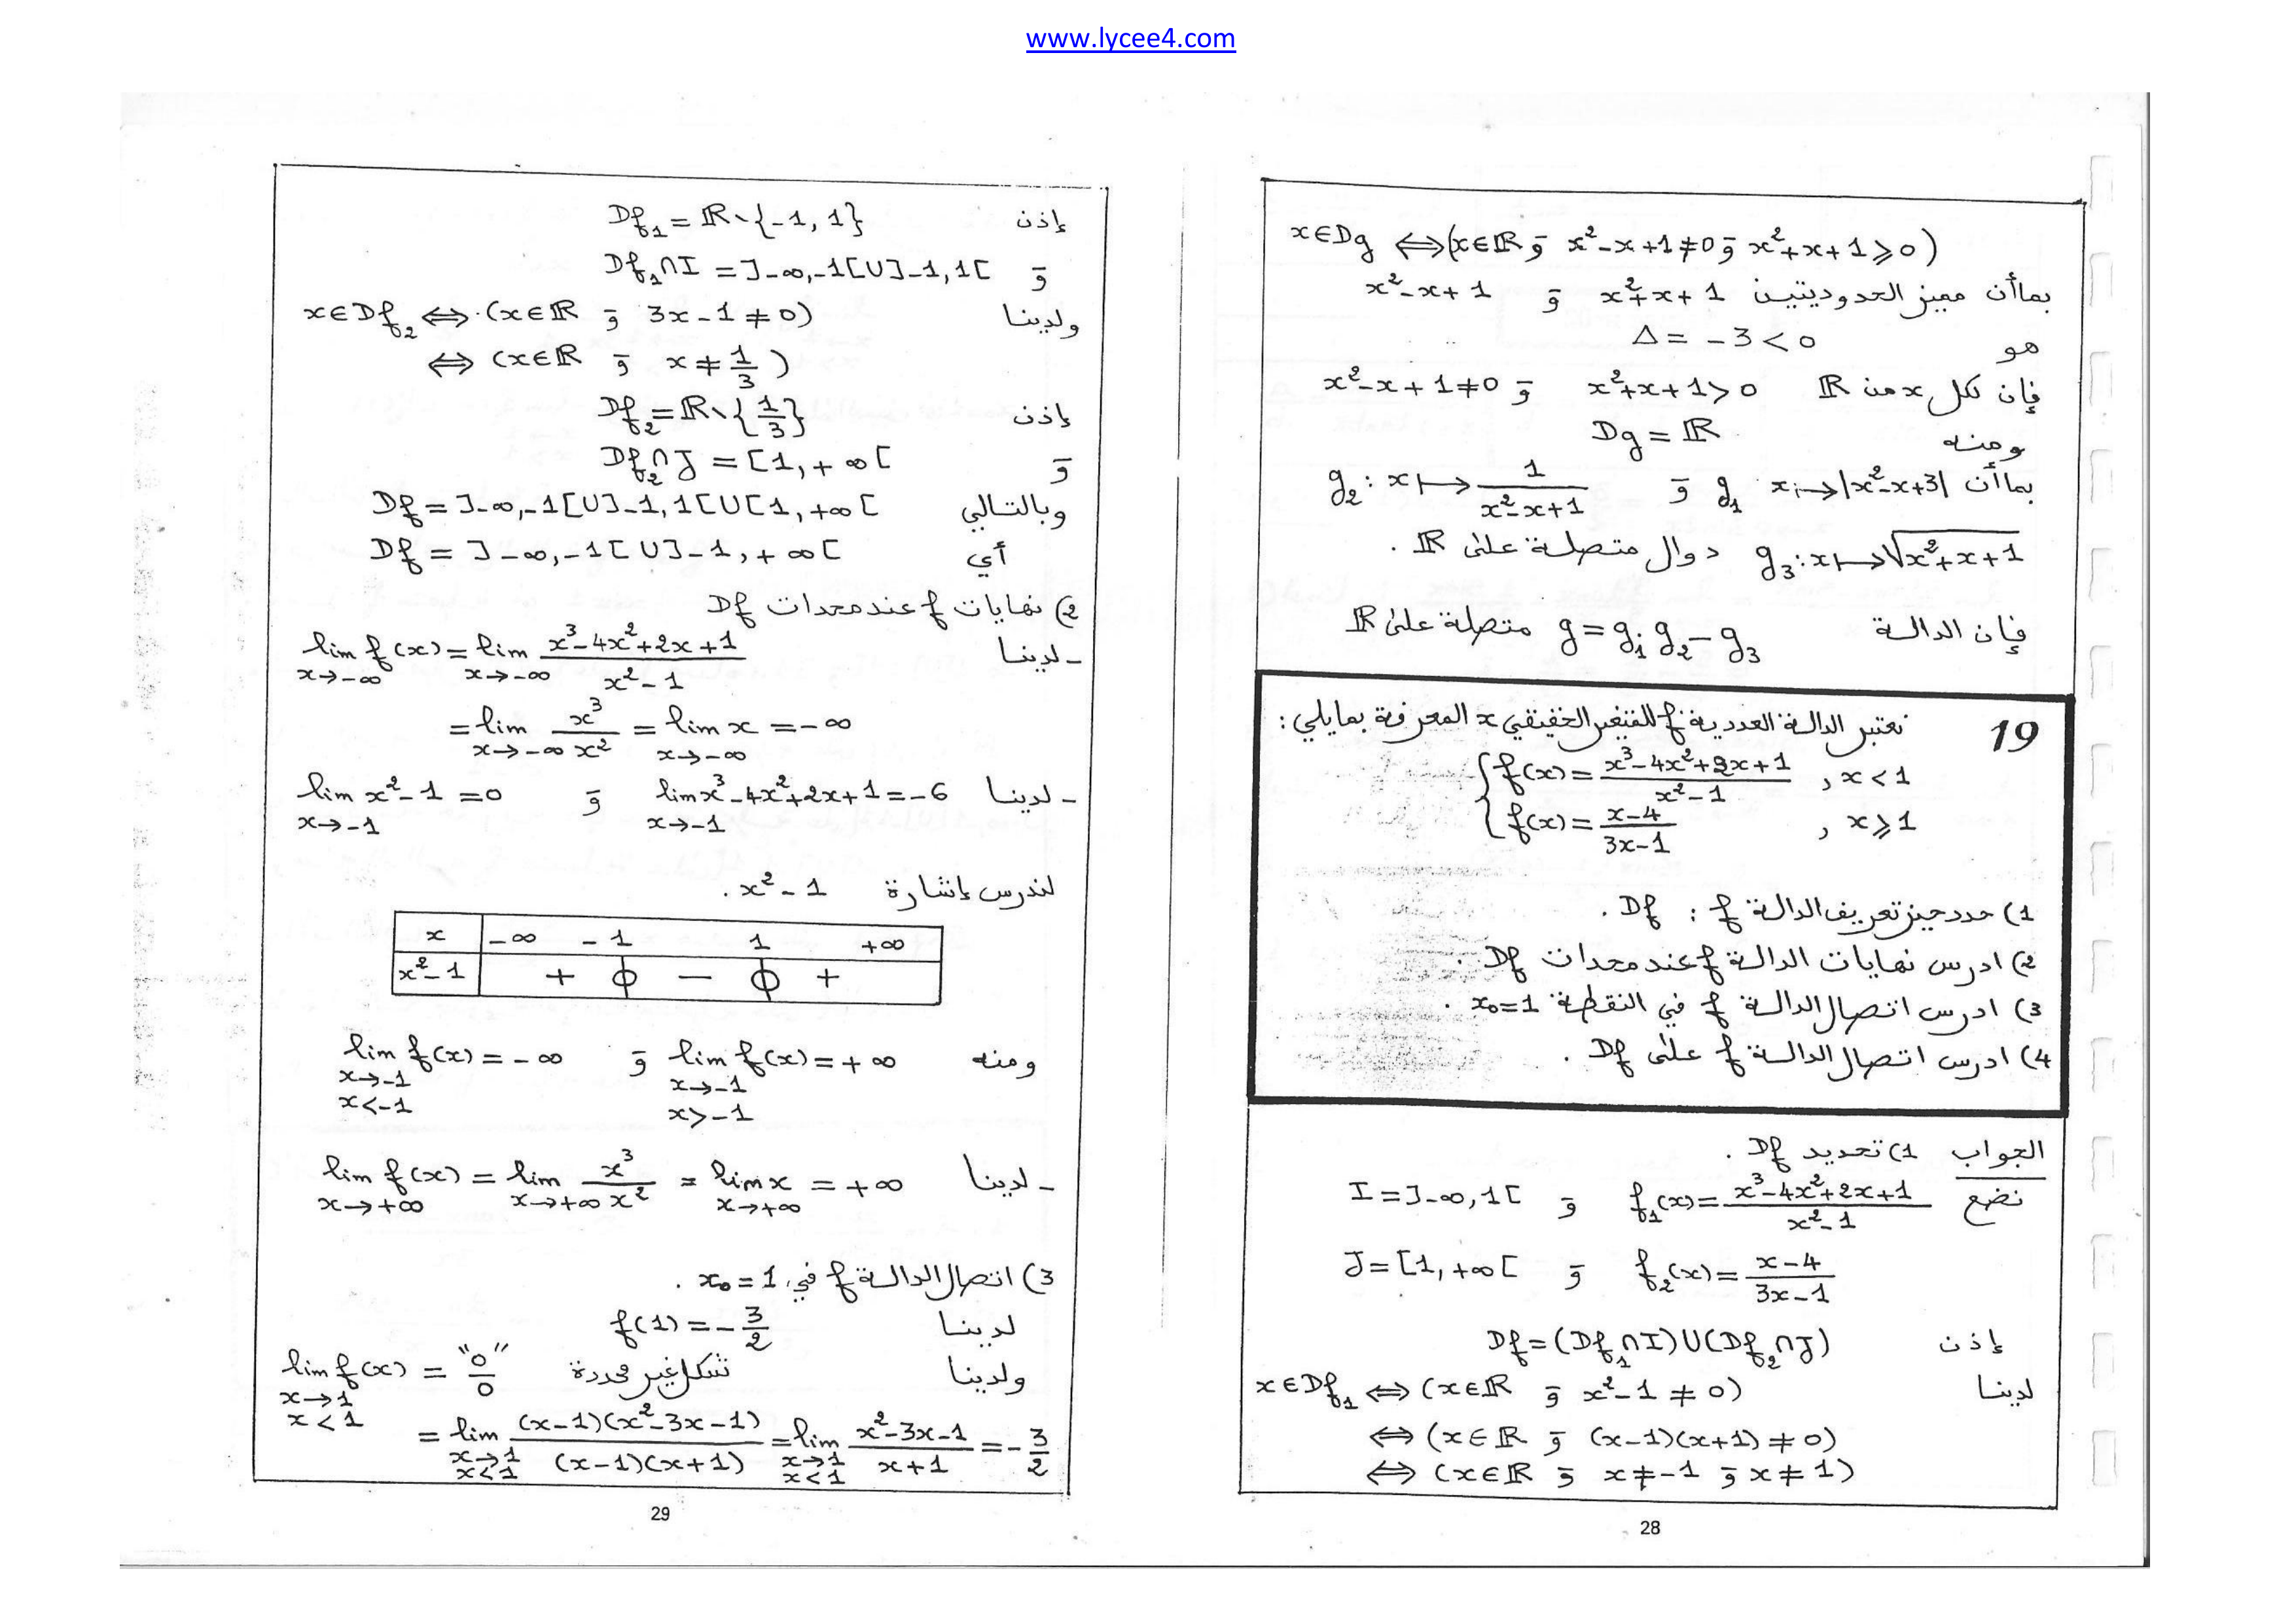 www.lycee4.com
x∈Dg ⟺ (x∈ℝ و x²-x+1≠0 و x²+x+1⩾0)
بما أن مميز الحدوديتين x²+x+1 و x²-x+1
هو Δ = -3 < 0
فإن لكل x من ℝ x²+x+1>0 و x²-x+1≠0
ومنه Dg = ℝ
بما أن g₁ x↦|x²-x+3| و g₂: x↦ 1/(x²-x+1)
g₃: x↦√(x²+x+1) دوال متصلة على ℝ .
فإن الدالة g = g₁g₂ - g₃ متصلة على ℝ
19 نعتبر الدالة العددية f للمتغير الحقيقي x المعرفة بمايلي:
{ f(x) = (x³-4x²+2x+1)/(x²-1) , x<1
{ f(x) = (x-4)/(3x-1) , x⩾1
1) حدد حيز تعريف الدالة f : Df .
2) ادرس نهايات الدالة f عند محدات Df .
3) ادرس اتصال الدالة f في النقطة x₀=1 .
4) ادرس اتصال الدالة f على Df .
الجواب 1) تحديد Df .
نضع f₁(x) = (x³-4x²+2x+1)/(x²-1) و I = ]-∞,1[
f₂(x) = (x-4)/(3x-1) و J = [1,+∞[
إذن Df = (Df₁∩I)∪(Df₂∩J)
لدينا x∈Df₁ ⟺ (x∈ℝ و x²-1 ≠ 0)
⟺ (x∈ℝ و (x-1)(x+1) ≠ 0)
⟺ (x∈ℝ و x≠-1 و x≠1)
28
إذن Df₁ = ℝ∖{-1, 1}
و Df₁∩I = ]-∞,-1[∪]-1,1[
ولدينا x∈Df₂ ⟺ (x∈ℝ و 3x-1 ≠ 0)
⟺ (x∈ℝ و x ≠ 1/3)
إذن Df₂ = ℝ∖{1/3}
و Df₂∩J = [1,+∞[
وبالتالي Df = ]-∞,-1[∪]-1,1[∪[1,+∞[
أي Df = ]-∞,-1[∪]-1,+∞[
2) نهايات f عند محدات Df
- لدينا lim f(x) = lim (x³-4x²+2x+1)/(x²-1)
x→-∞ x→-∞
= lim x³/x² = lim x = -∞
x→-∞ x→-∞
- لدينا lim x³-4x²+2x+1 = -6 و lim x²-1 = 0
x→-1 x→-1
لندرس إشارة x²-1 .
x -∞ -1 1 +∞
x²-1 + 0 - 0 +
ومنه lim f(x) = +∞ و lim f(x) = -∞
x→-1 x→-1
x>-1 x<-1
- لدينا lim f(x) = lim x³/x² = lim x = +∞
x→+∞ x→+∞ x→+∞
3) اتصال الدالة f في x₀=1 .
لدينا f(1) = -3/2
ولدينا lim f(x) = "0/0" شكل غير محددة
x→1
x<1
= lim (x-1)(x²-3x-1)/((x-1)(x+1)) = lim (x²-3x-1)/(x+1) = -3/2
x→1 x→1
x<1 x<1
29